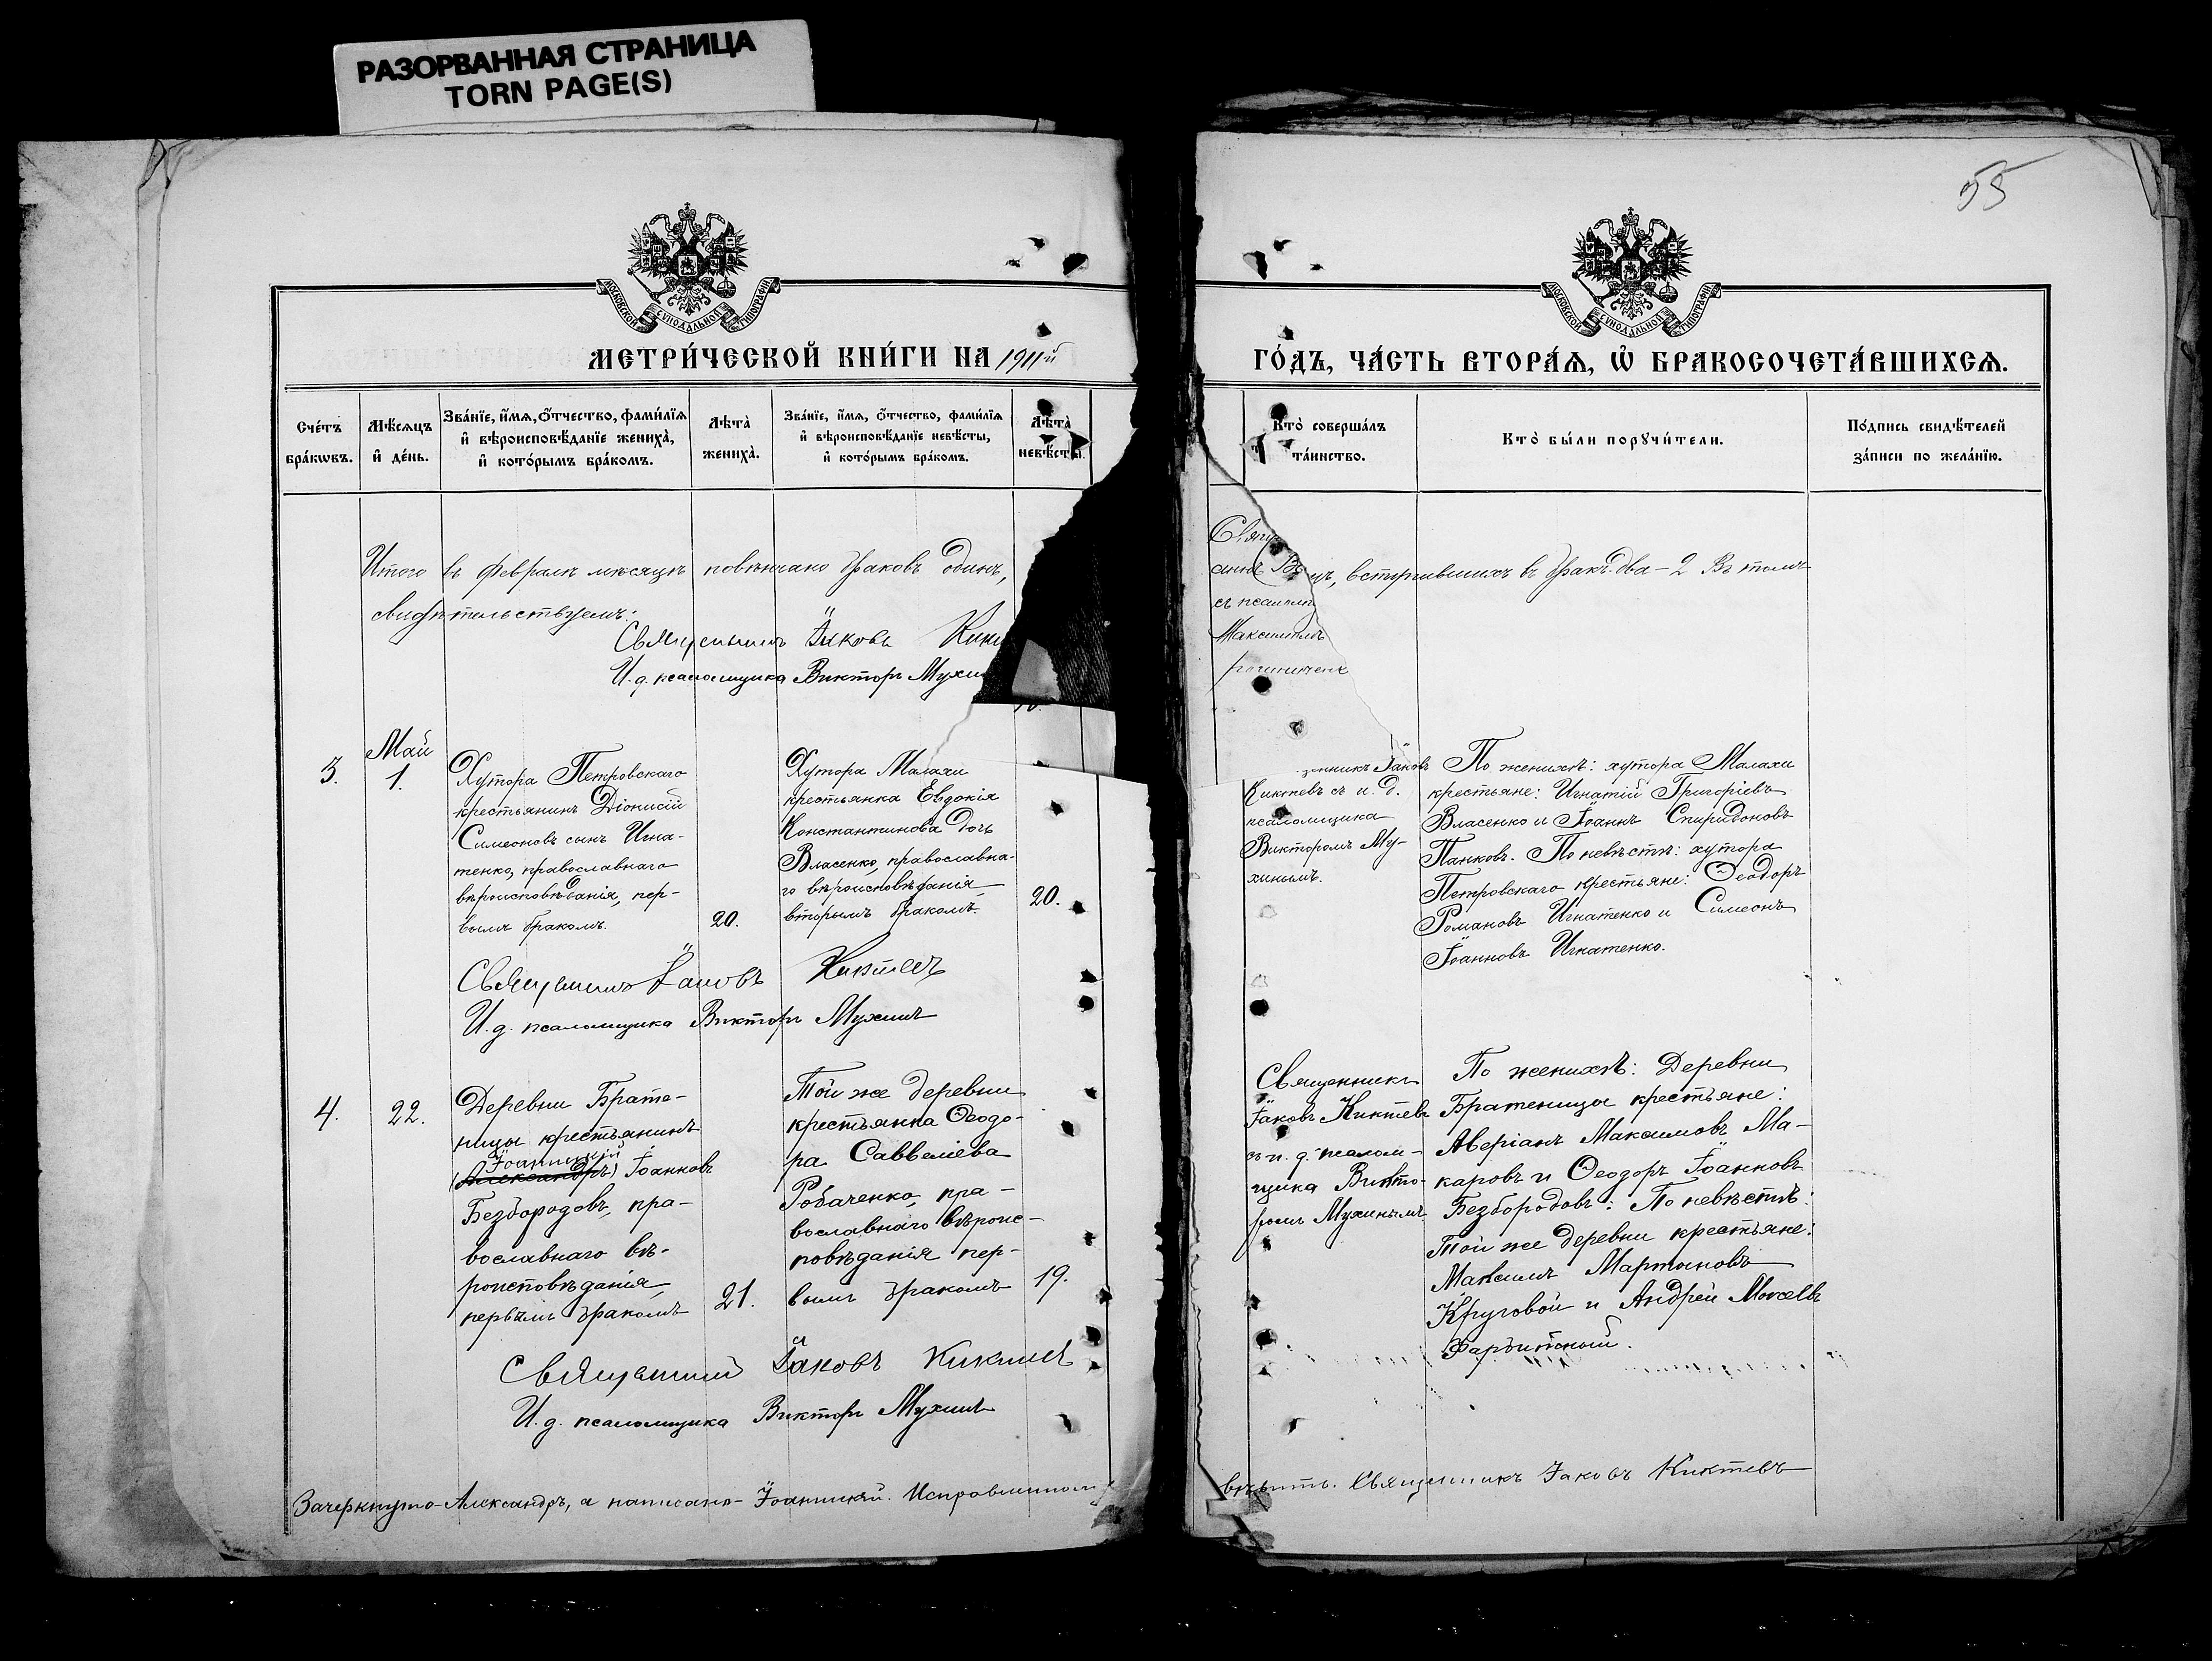 РАЗОРВАННАЯ СТРАНИЦА
TORN PAGE(S)
55
МОСКОВСКОЙ СУНОДАЛЬНОЙ ТИПОГРАФІИ
МОСКОВСКОЙ СУНОДАЛЬНОЙ ТИПОГРАФІИ
МЕТРИ́ЧЕСКОЙ КНИ́ГИ НА 1911й
ГО́ДЪ, ЧА́СТЬ ВТОРА́Ѧ, Ѽ БРАКОСОЧЕТА́ВШИХСѦ.
Сче́тъ
бра́кѡвъ.
Мѣ́сяцъ
и҆ де́нь.
Зва́нїе, и҆́мя, ѻ҆́тчество, фами́лїя
и҆ вѣроисповѣ́данїе жениха̀,
и҆ кото́рымъ бра́комъ.
Лѣта̀
жениха̀.
Зва́нїе, и҆́мя, ѻ҆́тчество, фами́лїя
и҆ вѣроисповѣ́данїе невѣ́сты,
и҆ кото́рымъ бра́комъ.
Лѣта̀
невѣ́сты.
Кто̀ соверша́лъ
та́инство.
Кто̀ бы́ли порꙋчи́тели.
По́дпись свидѣ́телей
за́писи по жела́нїю.
Итого въ Февралѣ мѣсяцѣ повѣнчано браковъ одинъ,
свидѣтельствуемъ:
Священникъ Іаковъ
И. д. псаломщика Викторъ
вступившихъ въ бракъ два – 2 Въ томъ
Май
3.
1.
Хутора Петровскаго
крестьянинъ Діонисій
Симеоновъ сынъ Игна-
тенко, православнаго
вѣроисповѣданія, пер-
вымъ бракомъ.
20.
Хутора Малахи
крестьянка Евдокія
Константинова дочь
Власенко, православна-
го вѣроисповѣданія
вторымъ бракомъ.
20.
Іаковъ
Киктевъ съ и. д.
псаломщика
Викторомъ Му-
хинымъ.
По женихѣ: хутора Малахи
крестьяне: Игнатій Григоріевъ
Власенко и Іоаннъ Спиридоновъ
Панковъ. По невѣстѣ: хутора
Петровскаго крестьяне: Ѳеодоръ
Романовъ Игнатенко и Симеонъ
Іоанновъ Игнатенко.
Священникъ Іаковъ Киктевъ
И. д. псаломщика Викторъ Мухинъ
4.
22.
Деревни Брате-
ницы крестьянинъ
Іоанникій
(Александръ) Іоанновъ
Безбородовъ, пра-
вославнаго вѣ-
роисповѣданія,
первымъ бракомъ
21.
Той же деревни
крестьянка Ѳеодо-
ра Саввеліева
Робаченко, пра-
вославнаго вѣроис-
повѣданія пер-
вымъ бракомъ
19.
Священникъ
Іаковъ Киктевъ
съ и. д. псалом-
щика Викто-
ромъ Мухинымъ
По женихѣ: Деревни
Братеницы крестьяне:
Аверіанъ Максимовъ Ма-
каровъ и Ѳеодоръ Іоанновъ
Безбородовъ: По невѣстѣ:
Той же деревни крестьяне:
Максимъ Мартыновъ
Круговой и Андрей
Священникъ Іаковъ Киктевъ
И. д. псаломщика Викторъ Мухинъ
Зачеркнуто – Александръ, а написано – Іоанникій. Исправленному
вѣрить. Священникъ Іаковъ Киктевъ